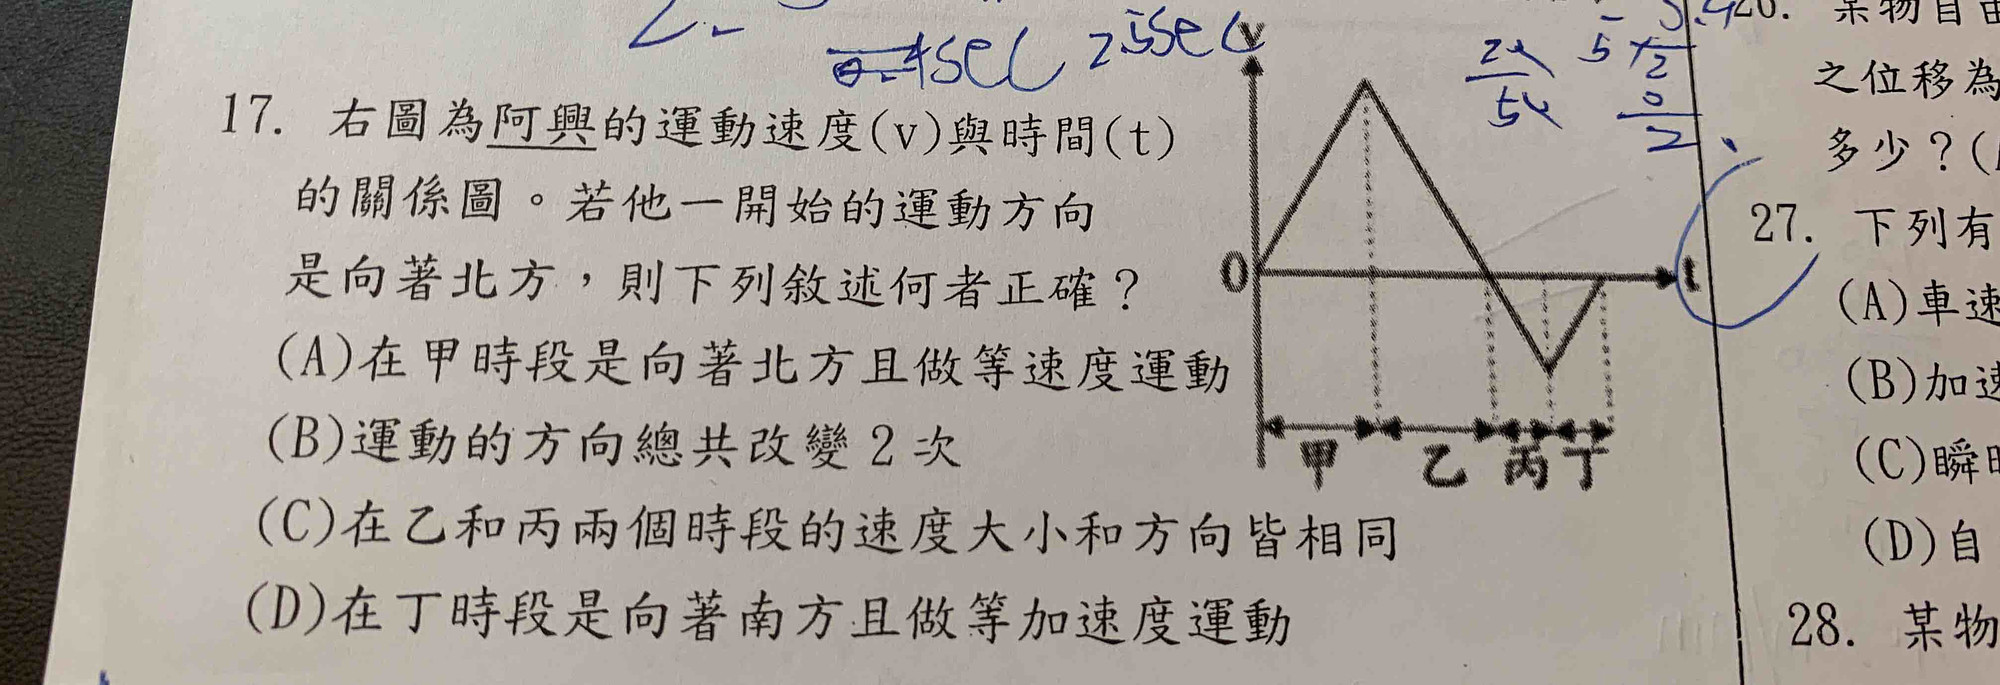 17. 右圖為阿興的運動速度(v)與時間(t)
的關係圖。若他一開始的運動方向
是向著北方，則下列敘述何者正確？
(A)在甲時段是向著北方且做等速度運動
(B)運動的方向總共改變2次
(C)在乙和丙兩個時段的速度大小和方向皆相同
(D)在丁時段是向著南方且做等加速度運動
v
0
t
甲 乙 丙 丁
sec
某物自由
之位移為
多少？(
27. 下列有
(A)車速
(B)加速
(C)瞬時
(D)自
28. 某物